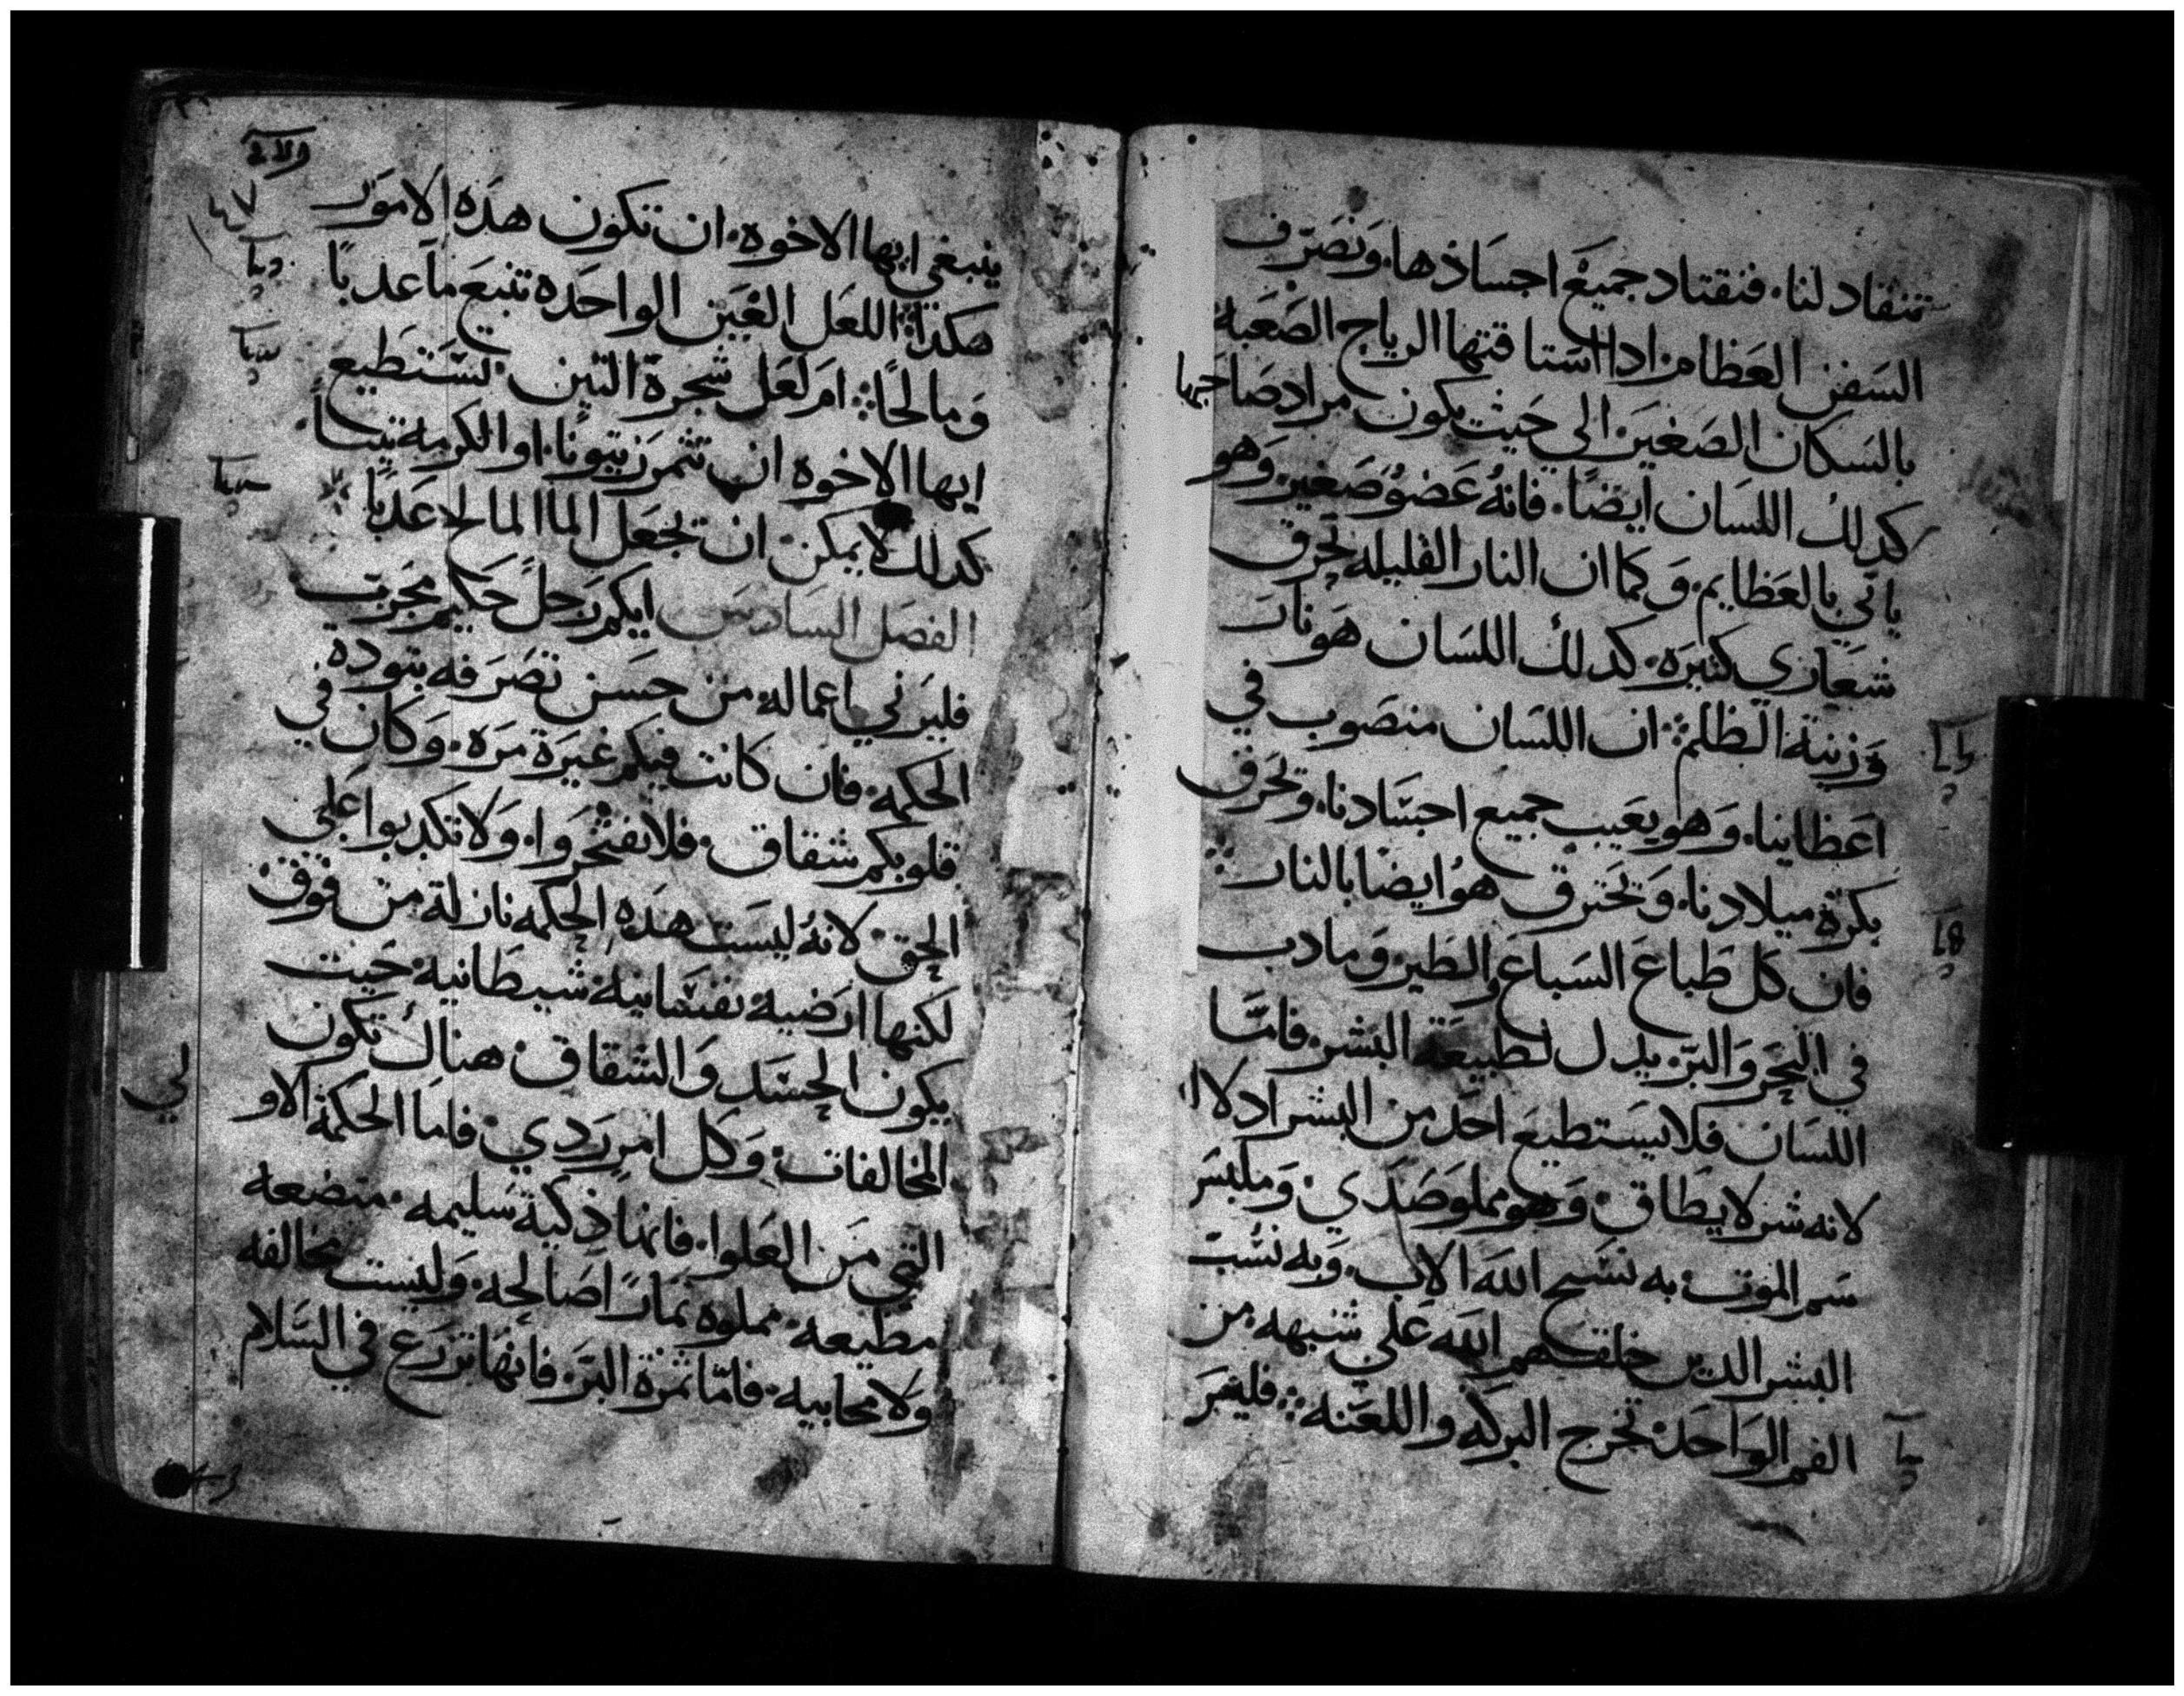 تنقاد لنا. فنقتاد جميع اجساذها. ونصرف
السفن العظام اذا استاقتها الرياح الصعبة
بالسكان الصغير. الي حيث يكون مراد صاحبها
كدلك اللسان ايضا. فانه عضو صغير. وهو
ياتي بالعظايم. وكما ان النار القليله تحرق
شعاري كثيره. كدلك اللسان هو نار
وزينة الظلم. ان اللسان منصوب في
اعظاينا. وهو يعيب جميع اجسادنا. وتحرق
بكرة ميلادنا. وتحترق هو ايضا بالنار
فان كل طباع السباع والطير. وما دب
في البحر والبر. يدل لطبيعة البشر. فاما
اللسان فلا يستطيع احد من البشر ادلاا
لانه شر لا يطاق. وهو مملو صدي. وملبس
سم الموت. به نسبح الله الاب. وبه نسب
البشر الدين خلقهم الله علي شبهه. من
الفم الواحد. تخرج البركه واللعنه. فليس
ينبغي ايها الاخوه. ان تكون هذه الامور
هكذا. اللعل العين الواحده تنبع ما عدبا
ومالحا. ام لعل شجرة التين. تستطيع
ايها الاخوه ان تتمر زيتونا. او الكرمه تينا.
كدلك لا يمكن. ان تجعل الما المالح عدبا
الفصل السادس ايكم رجل حكيم مجرب
فليرني اعماله من حسن تصرفه بتوده
الحكمه. فان كانت فيكم غيرة مره. وكان في
قلوبكم شقاق. فلا تفتخروا. ولا تكدبوا علي
الحق. لانه ليست هذه الحكمه نازلة من فوق
لكنها ارضيه نفسانيه شيطانيه. حيث
يكون الحسد والشقاق. هناك تكون
المخالفات. وكل امر ردي. فاما الحكمة الاو لي
التي من العلوا. فانها ذكية سليمه. متضعه
مطيعه. مملوه ثمارا صالحه. وليست مخالفه
ولا محابيه. فاما ثمرة البر. فانها تزرع في السلام